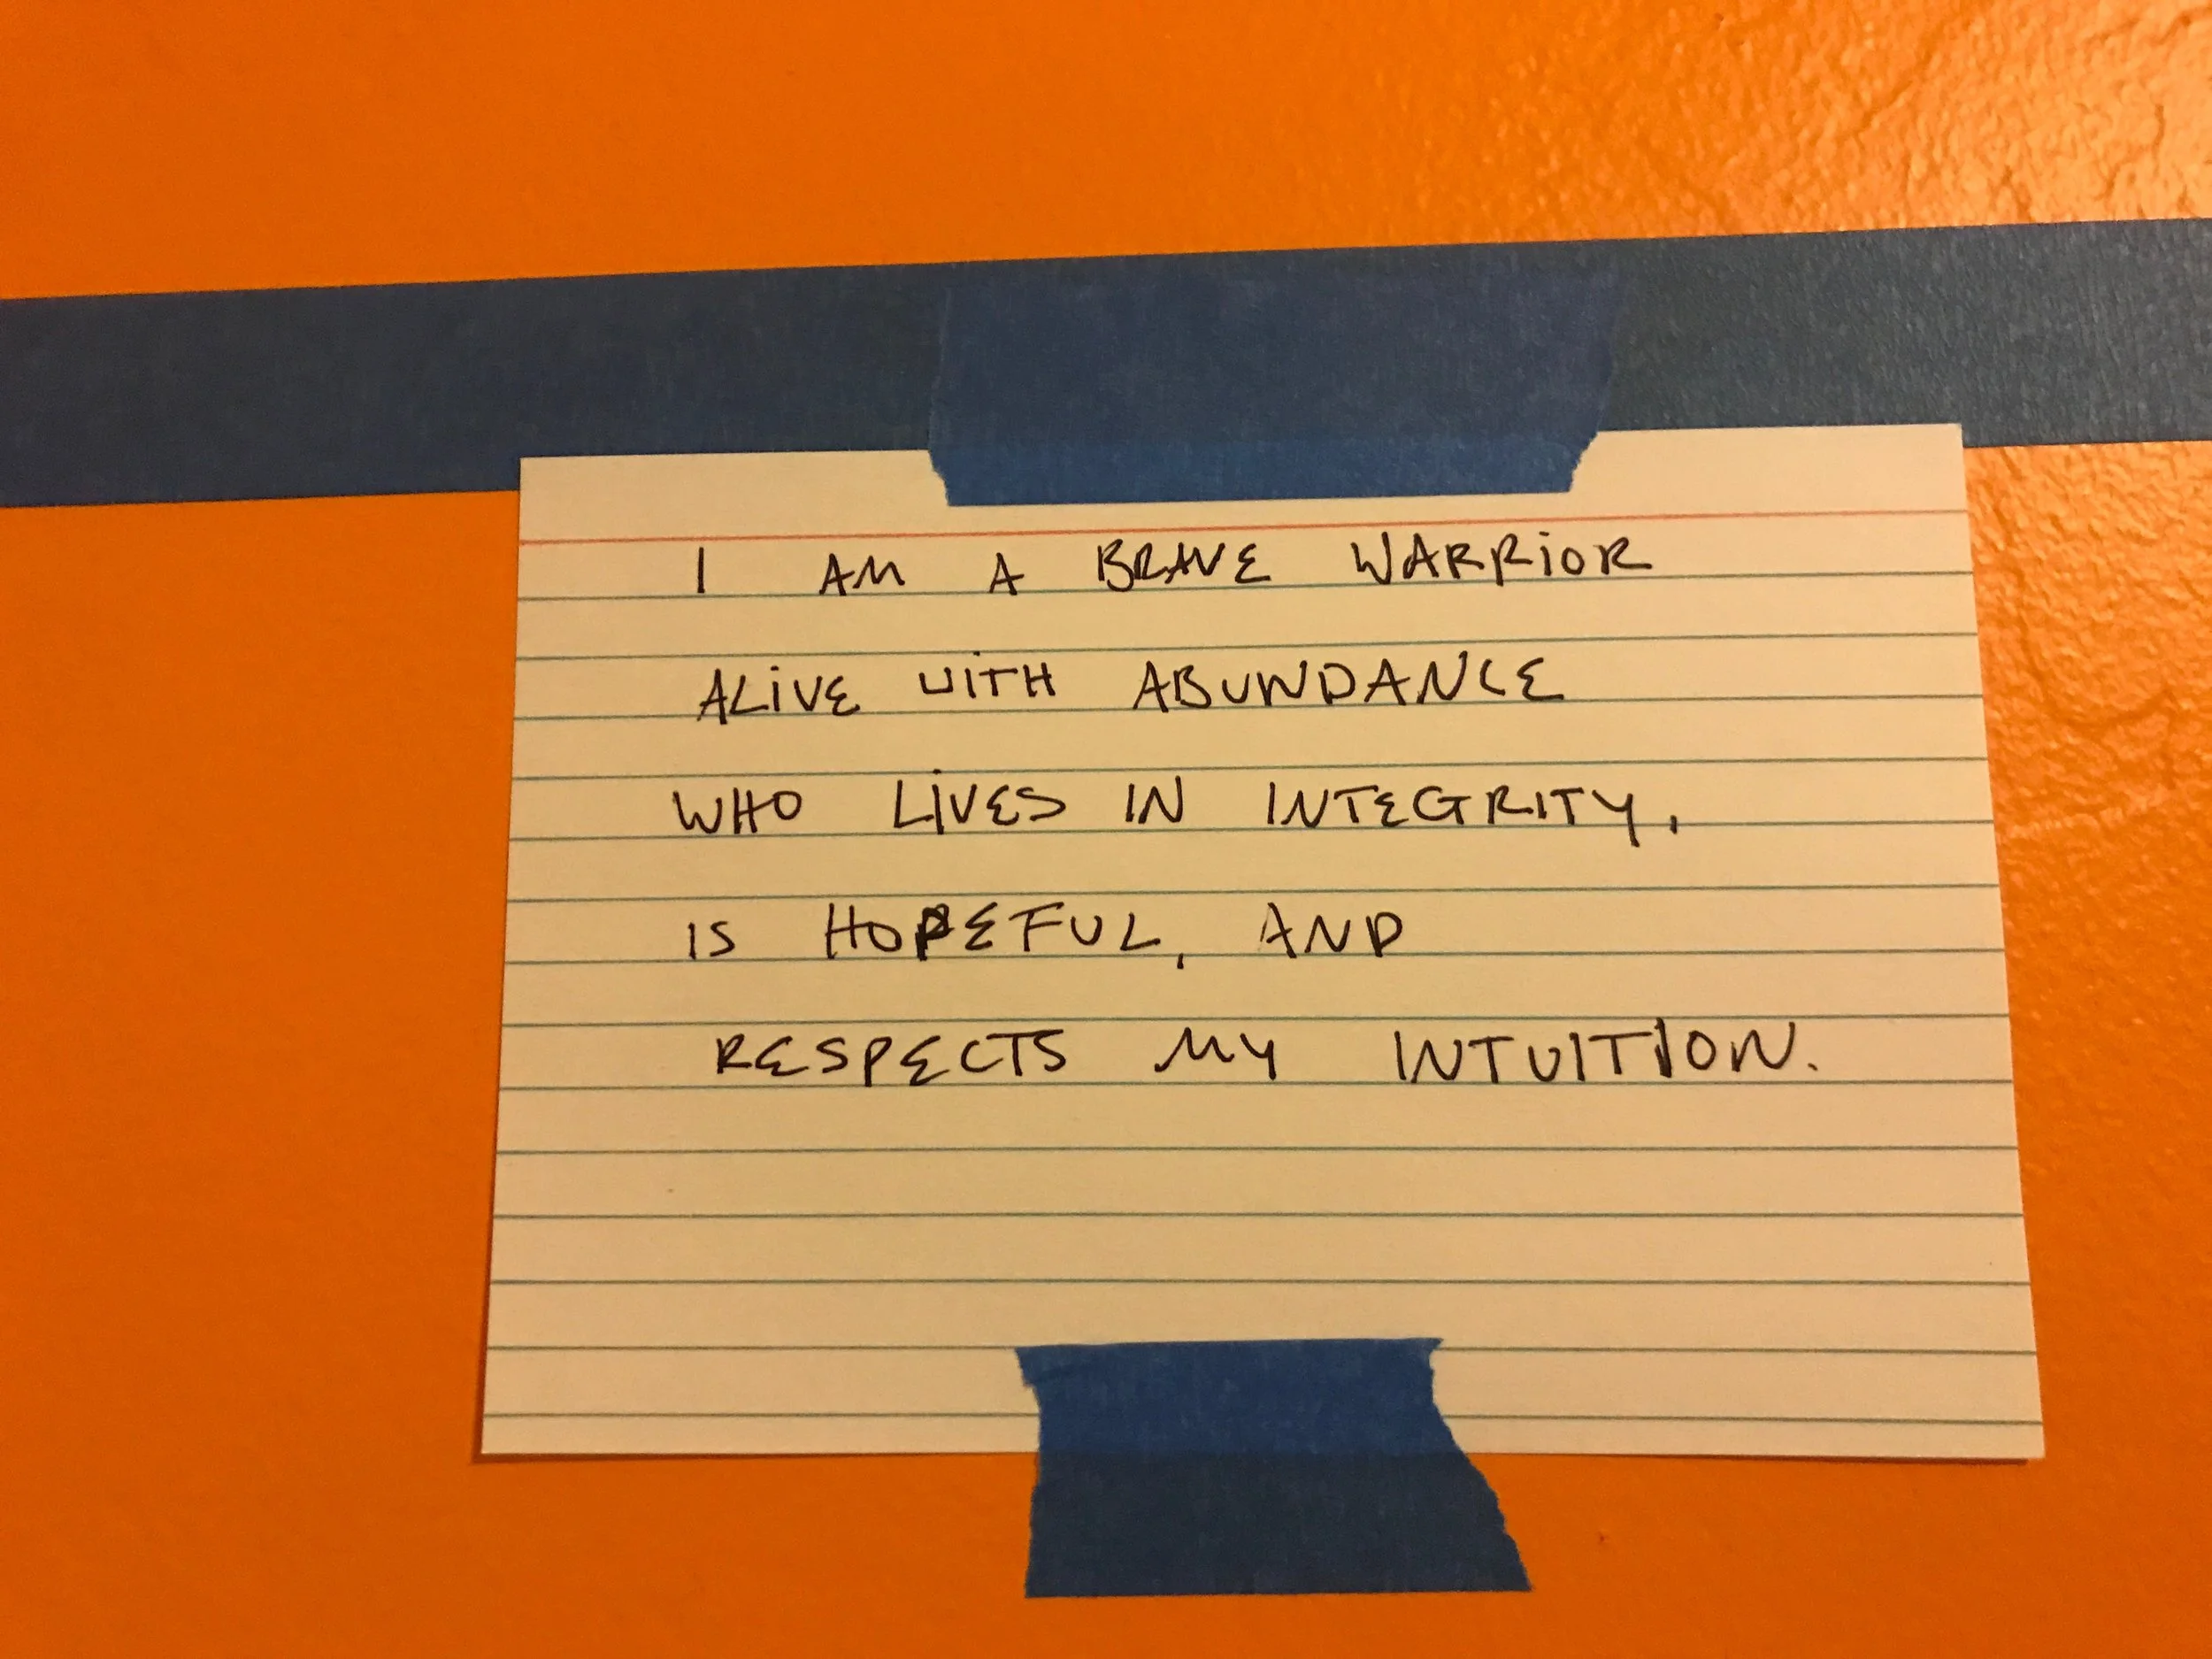 I AM A BRAVE WARRIOR
ALIVE WITH ABUNDANCE
WHO LIVES IN INTEGRITY,
IS HOPEFUL, AND
RESPECTS MY INTUITION.